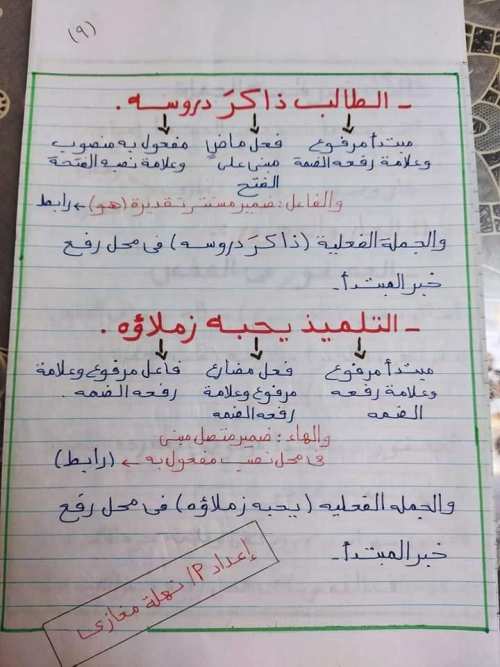 (٩)
- الطالب ذاكرَ دروسه .
مبتدأ مرفوع فعل ماضٍ مفعول به منصوب
وعلامة رفعه الضمة مبنى على وعلامة نصبه الفتحة
الفتح
والفاعل : ضمير مستتر تقديرة (هو) ← رابط
والجملة الفعلية (ذاكرَ دروسه) فى محل رفع
خبر المبتدأ.
- التلميذ يحبه زملاؤه .
مبتدأ مرفوع فعل مضارع فاعل مرفوع وعلامة
وعلامة رفعه مرفوع وعلامة رفعه الضمه .
الضمه رفعه الضمه
والهاء : ضمير متصل مبنى
فى محل نصب مفعول به ← (رابط)
والجمله الفعليه (يحبه زملاؤه) فى محل رفع
خبر المبتدأ.
إعداد م/ نهلة مغازى